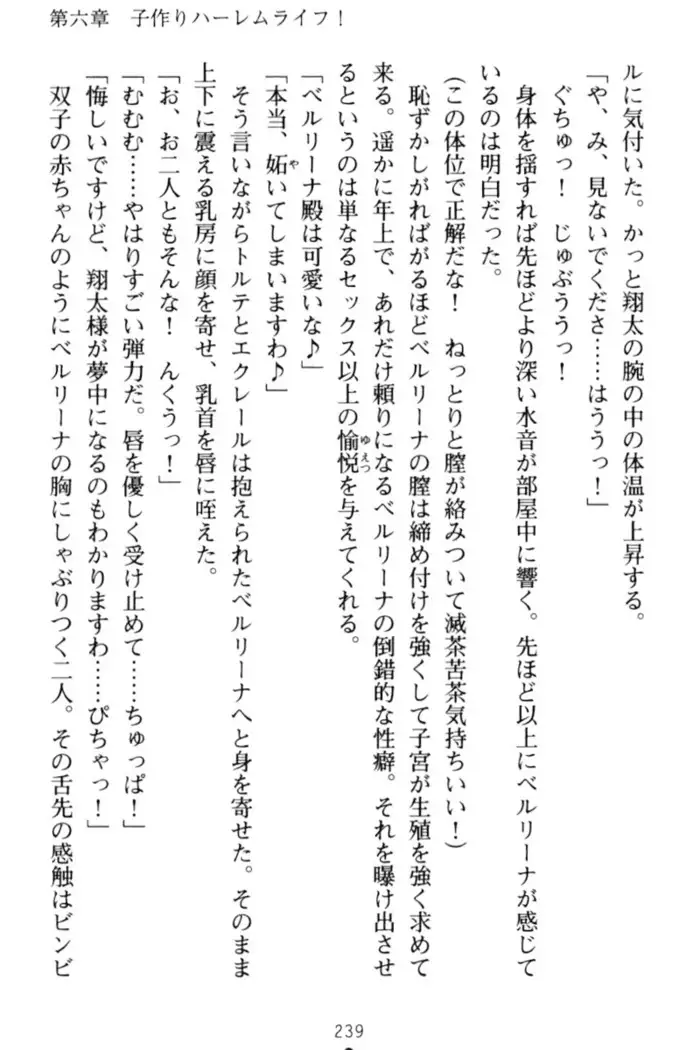 第六章　子作りハーレムライフ！
ルに気付いた。かっと翔太の腕の中の体温が上昇する。
「や、み、見ないでくださ……はううっ！」
ぐちゅっ！　じゅぶううっ！
身体を揺すれば先ほどより深い水音が部屋中に響く。先ほど以上にベルリーナが感じて
いるのは明白だった。
(この体位で正解だな！　ねっとりと膣が絡みついて滅茶苦茶気持ちいい！)
恥ずかしがればがるほどベルリーナの膣は締め付けを強くして子宮が生殖を強く求めて
来る。遥かに年上で、あれだけ頼りになるベルリーナの倒錯的な性癖。それを曝け出させ
るというのは単なるセックス以上の愉悦ゆえつを与えてくれる。
「ベルリーナ殿は可愛いな♪」
「本当、妬やいてしまいますわ♪」
そう言いながらトルテとエクレールは抱えられたベルリーナへと身を寄せた。そのまま
上下に震える乳房に顔を寄せ、乳首を唇に咥えた。
「お、お二人ともそんな！　んくうっ！」
「むむむ……やはりすごい弾力だ。唇を優しく受け止めて……ちゅっぱ！」
「悔しいですけど、翔太様が夢中になるのもわかりますわ……ぴちゃっ！」
双子の赤ちゃんのようにベルリーナの胸にしゃぶりつく二人。その舌先の感触はビンビ
239